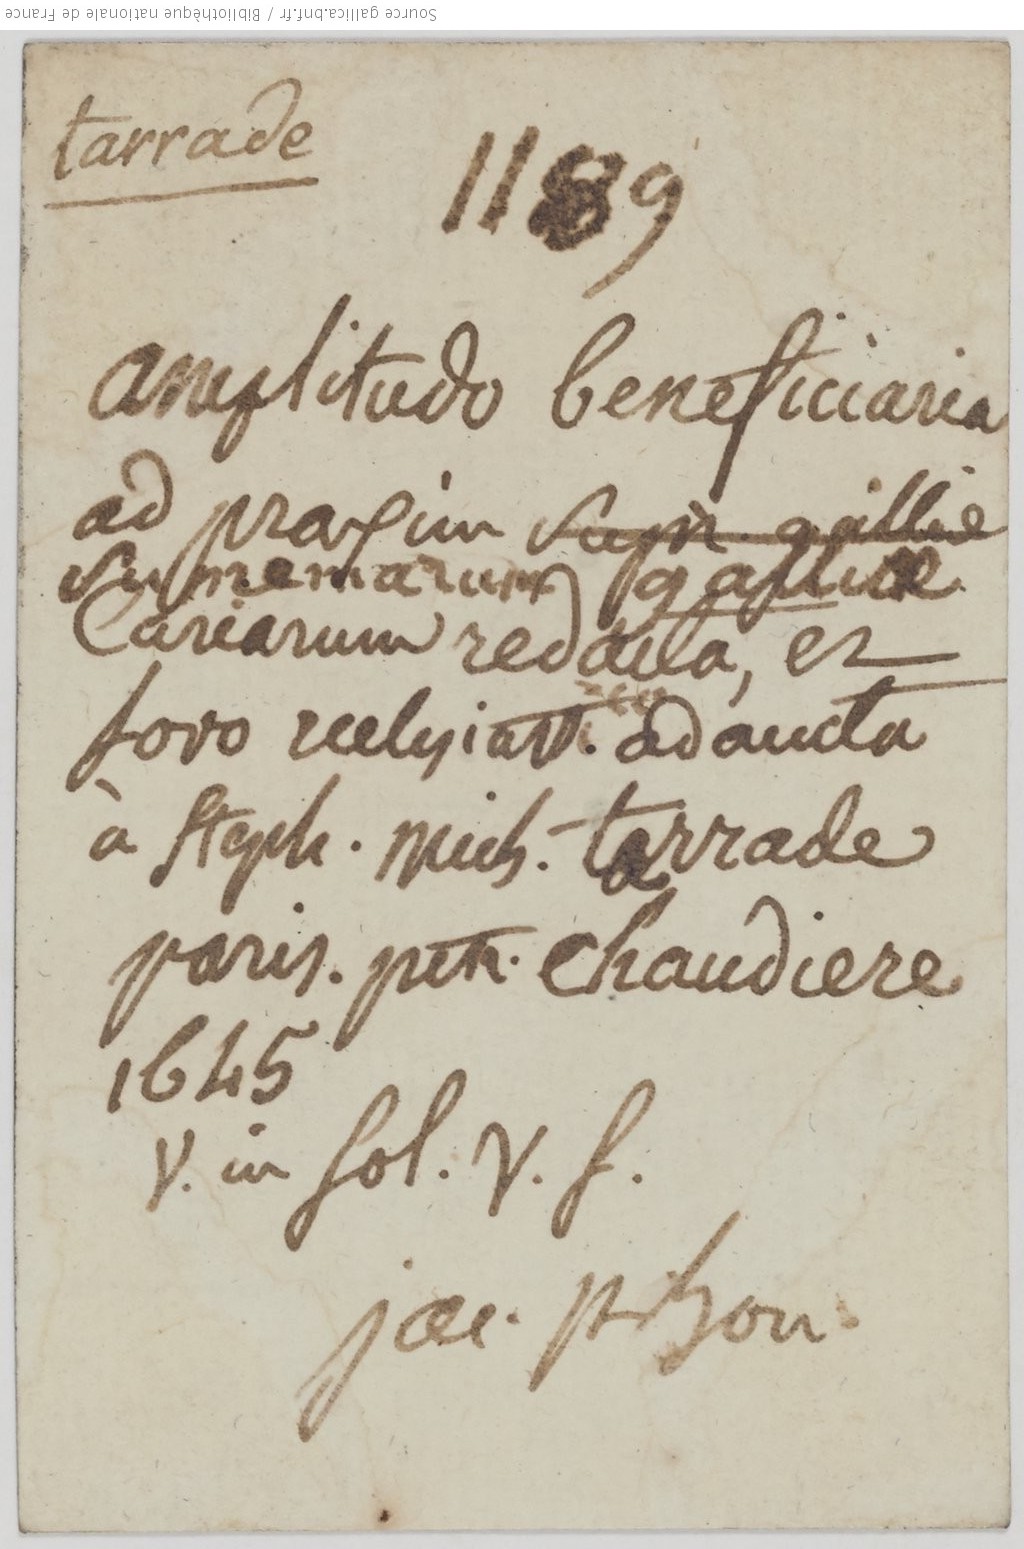 Source gallica.bnf.fr / Bibliothèque nationale de France
tarrade
1189
amplitudo beneficiaria
ad praxim supr. galliæ
supremarum galliæ
Curiarum redacta, et
foro ecclesiast. adaucta
à Steph. Mich. tarrade
paris. petr. chaudiere
1645
V. in fol. V. f.
jac. pihson